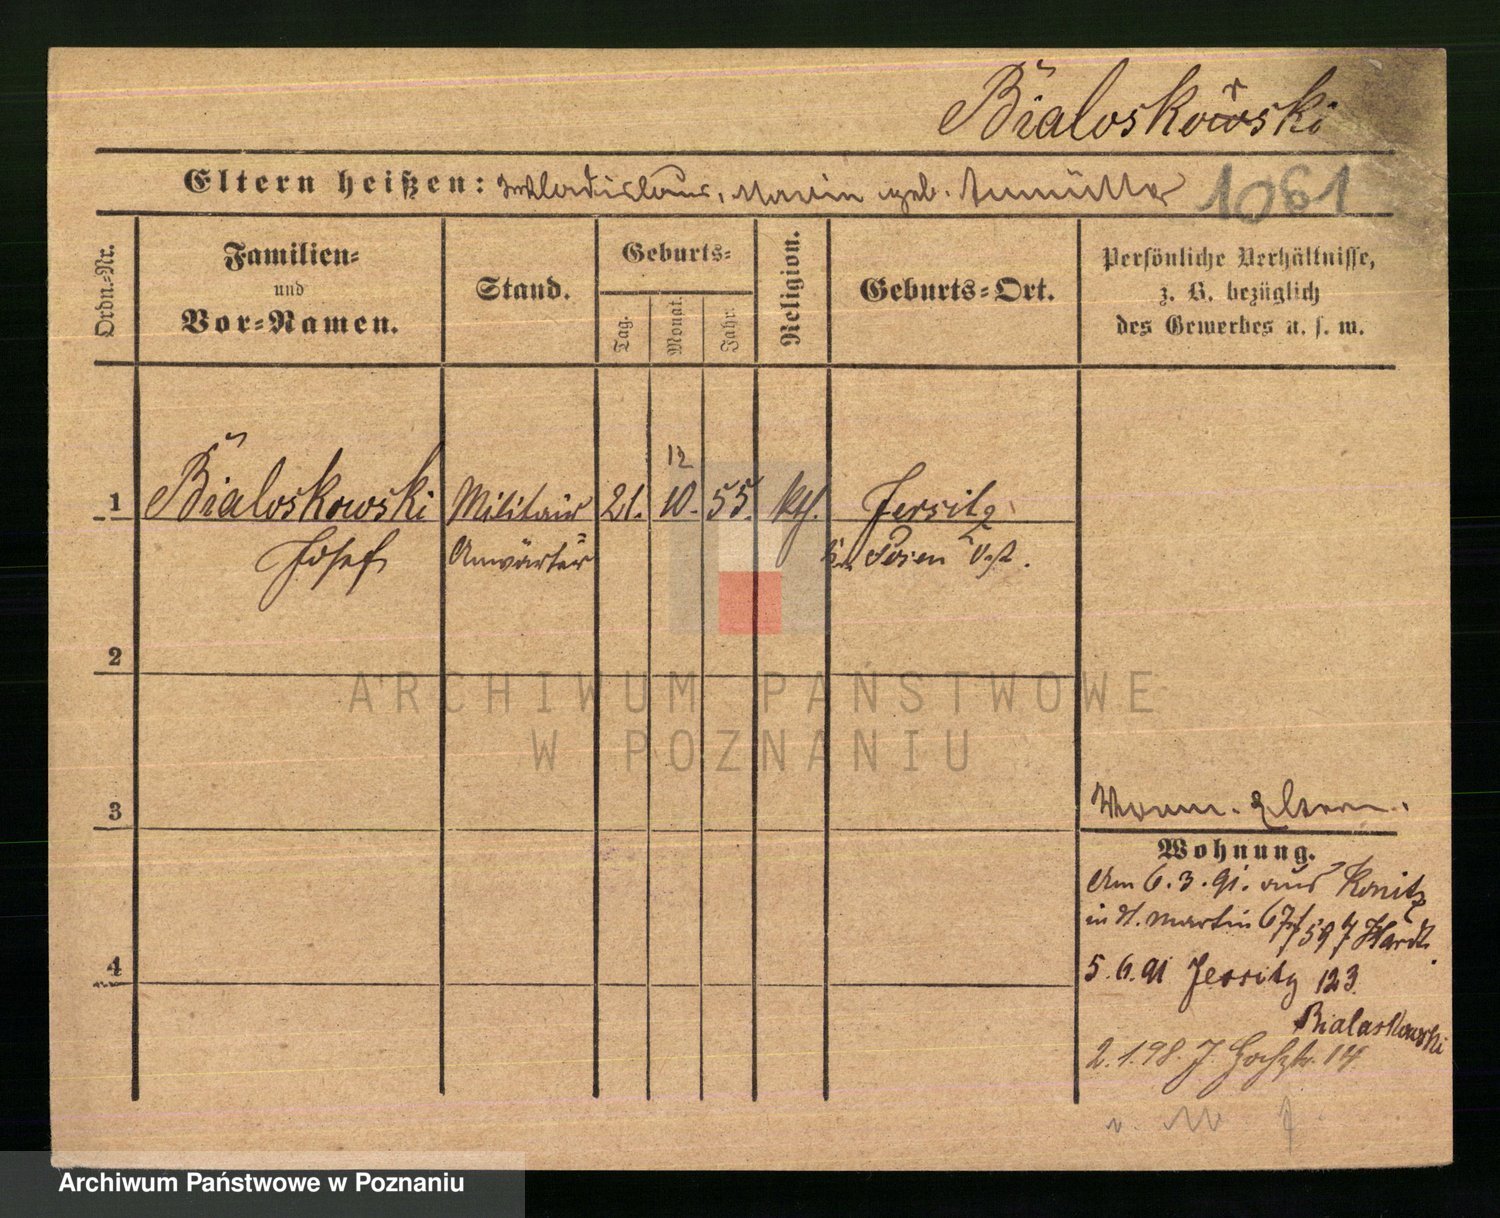 Bialoskowski
Eltern heißen: Wladislaus, Marin geb.
1081
Ordn.-Nr.
Familien-
und
Vor-Namen.
Stand.
Geburts-
Tag.
Monat.
Jahr.
Religion.
Geburts-Ort.
Persönliche Verhältnisse,
z. B. bezüglich
des Gewerbes u. s. w.
12
1 Bialoskowski Militair 21. 10. 55. kth. Jersitz
Josef Anwärter Posen Ost.
2
3
Eltern.
Wohnung.
Am 6.3.91. aus Konitz
in St. Martin 67
5.6.91 Jersitz 123.
Bialaskowski
2.1.98. J. 14
4
ARCHIWUM PAŃSTWOWE
W POZNANIU
Archiwum Państwowe w Poznaniu